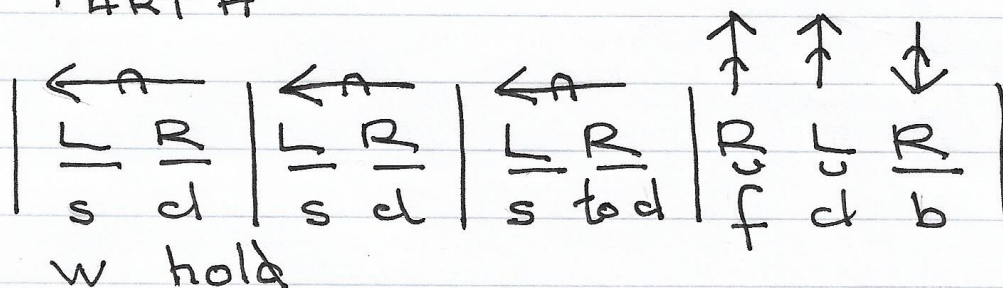 PART A
L R L R L R R L R
s d s d s to d f d b
w hold